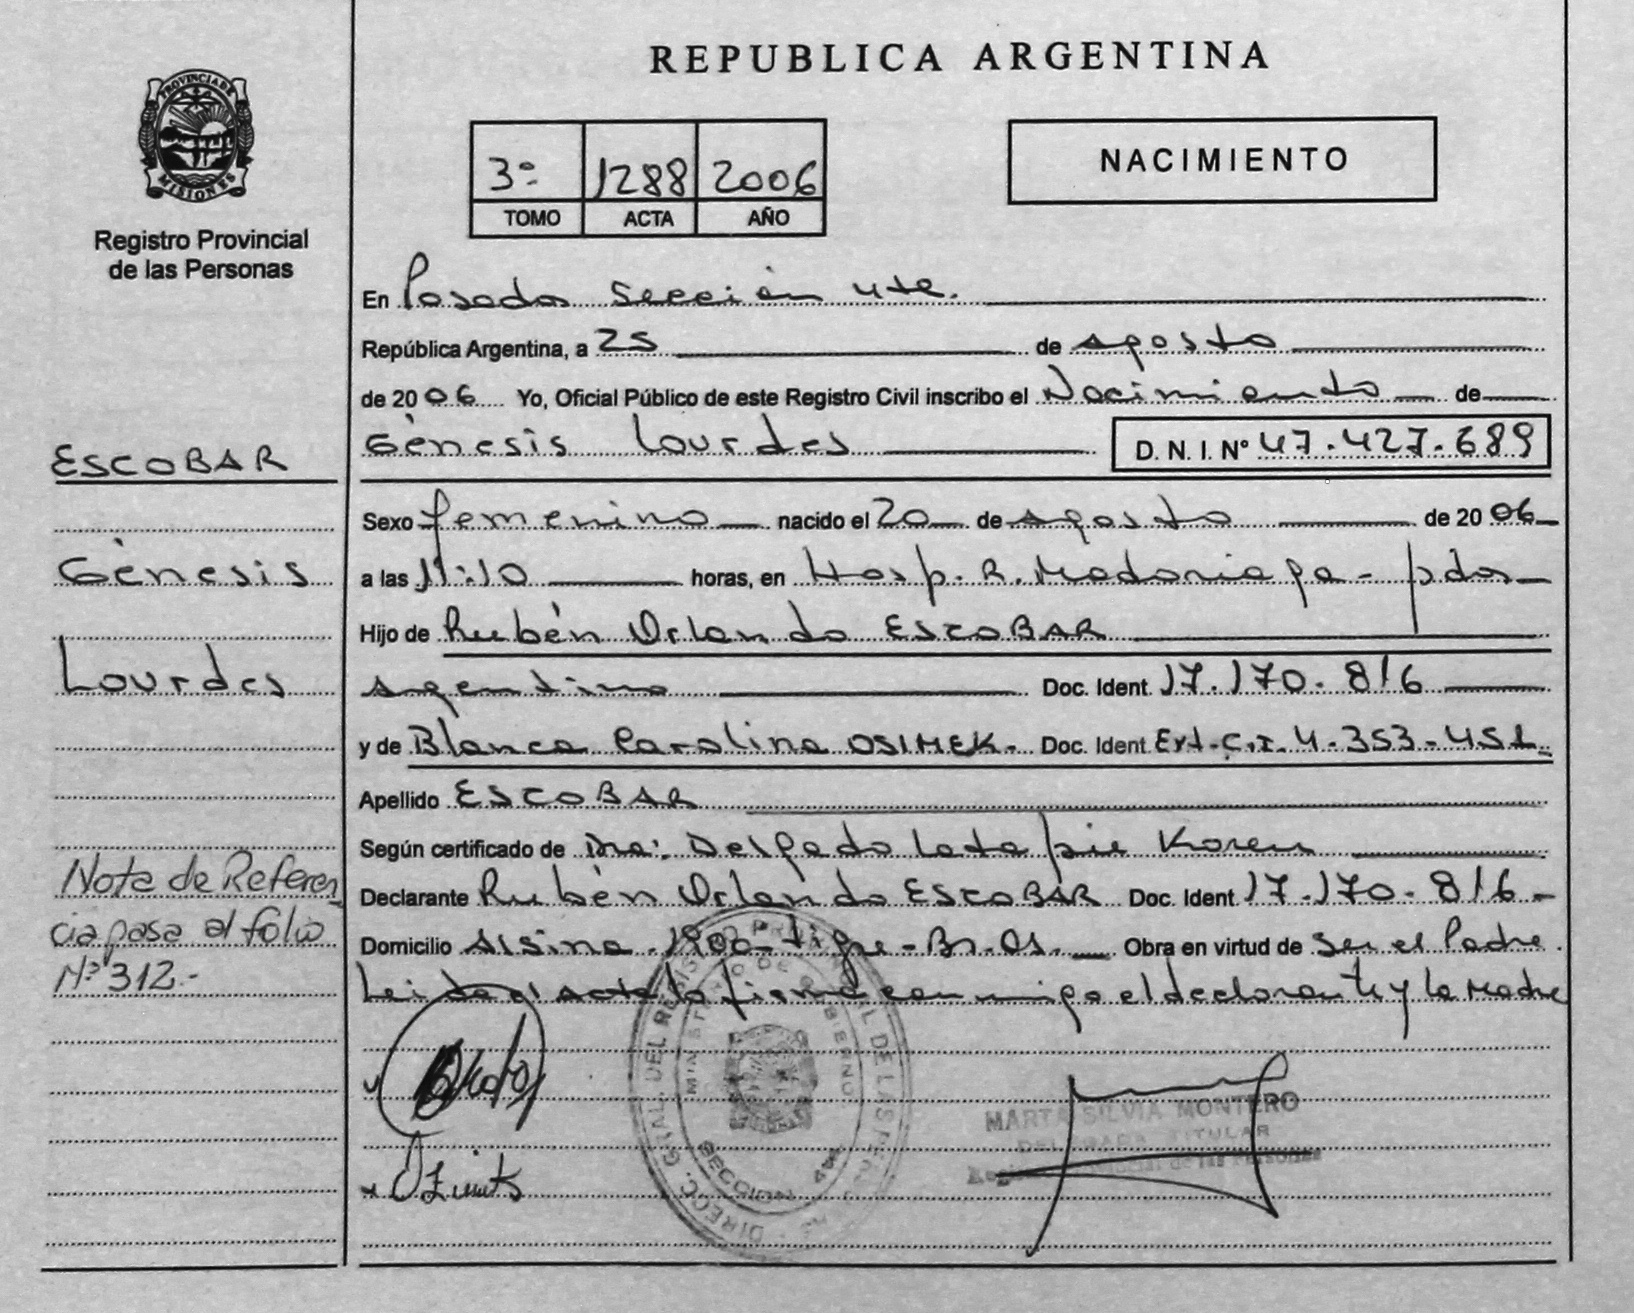 REPUBLICA ARGENTINA
PROVINCIA DE
MISIONES
Registro Provincial
de las Personas
3º 1288 2006
TOMO ACTA AÑO
NACIMIENTO
En Posadas Sección 4ta.
República Argentina, a 25 de agosto
de 2006 Yo, Oficial Público de este Registro Civil inscribo el Nacimiento de
Génesis Lourdes D. N. I. Nº 47.427.689
Sexo femenino nacido el 20 de agosto de 2006
a las 11:10 horas, en Hosp. R. Madariaga - pdas
Hijo de Rubén Orlando ESCOBAR
argentino Doc. Ident. 17.170.816
y de Blanca Carolina OSIMEK. Doc. Ident Ext. C.I. 4.353.451
Apellido ESCOBAR
Según certificado de Dra: Delgado Karen
Declarante Rubén Orlando ESCOBAR Doc. Ident. 17.170.816
Domicilio Alsina 1900 - Tigre - Bs. As. Obra en virtud de ser el Padre.
Leída el acta la firma conmigo el declarante y la Madre
ESCOBAR
Génesis
Lourdes
Nota de Referen
cia pasa al folio
Nº 312.-
MINISTERIO DE GOBIERNO
SECCION 4ta
MARTA SILVIA MONTERO
DELEGADA TITULAR
Registro Provincial de las Personas